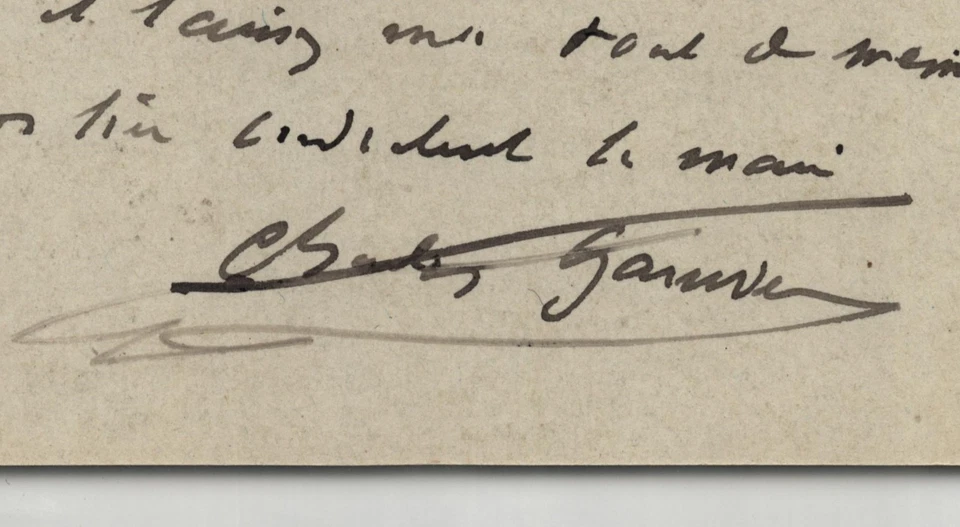 et laissez moi tout de même
bien cordialement la main
Charles Garnier